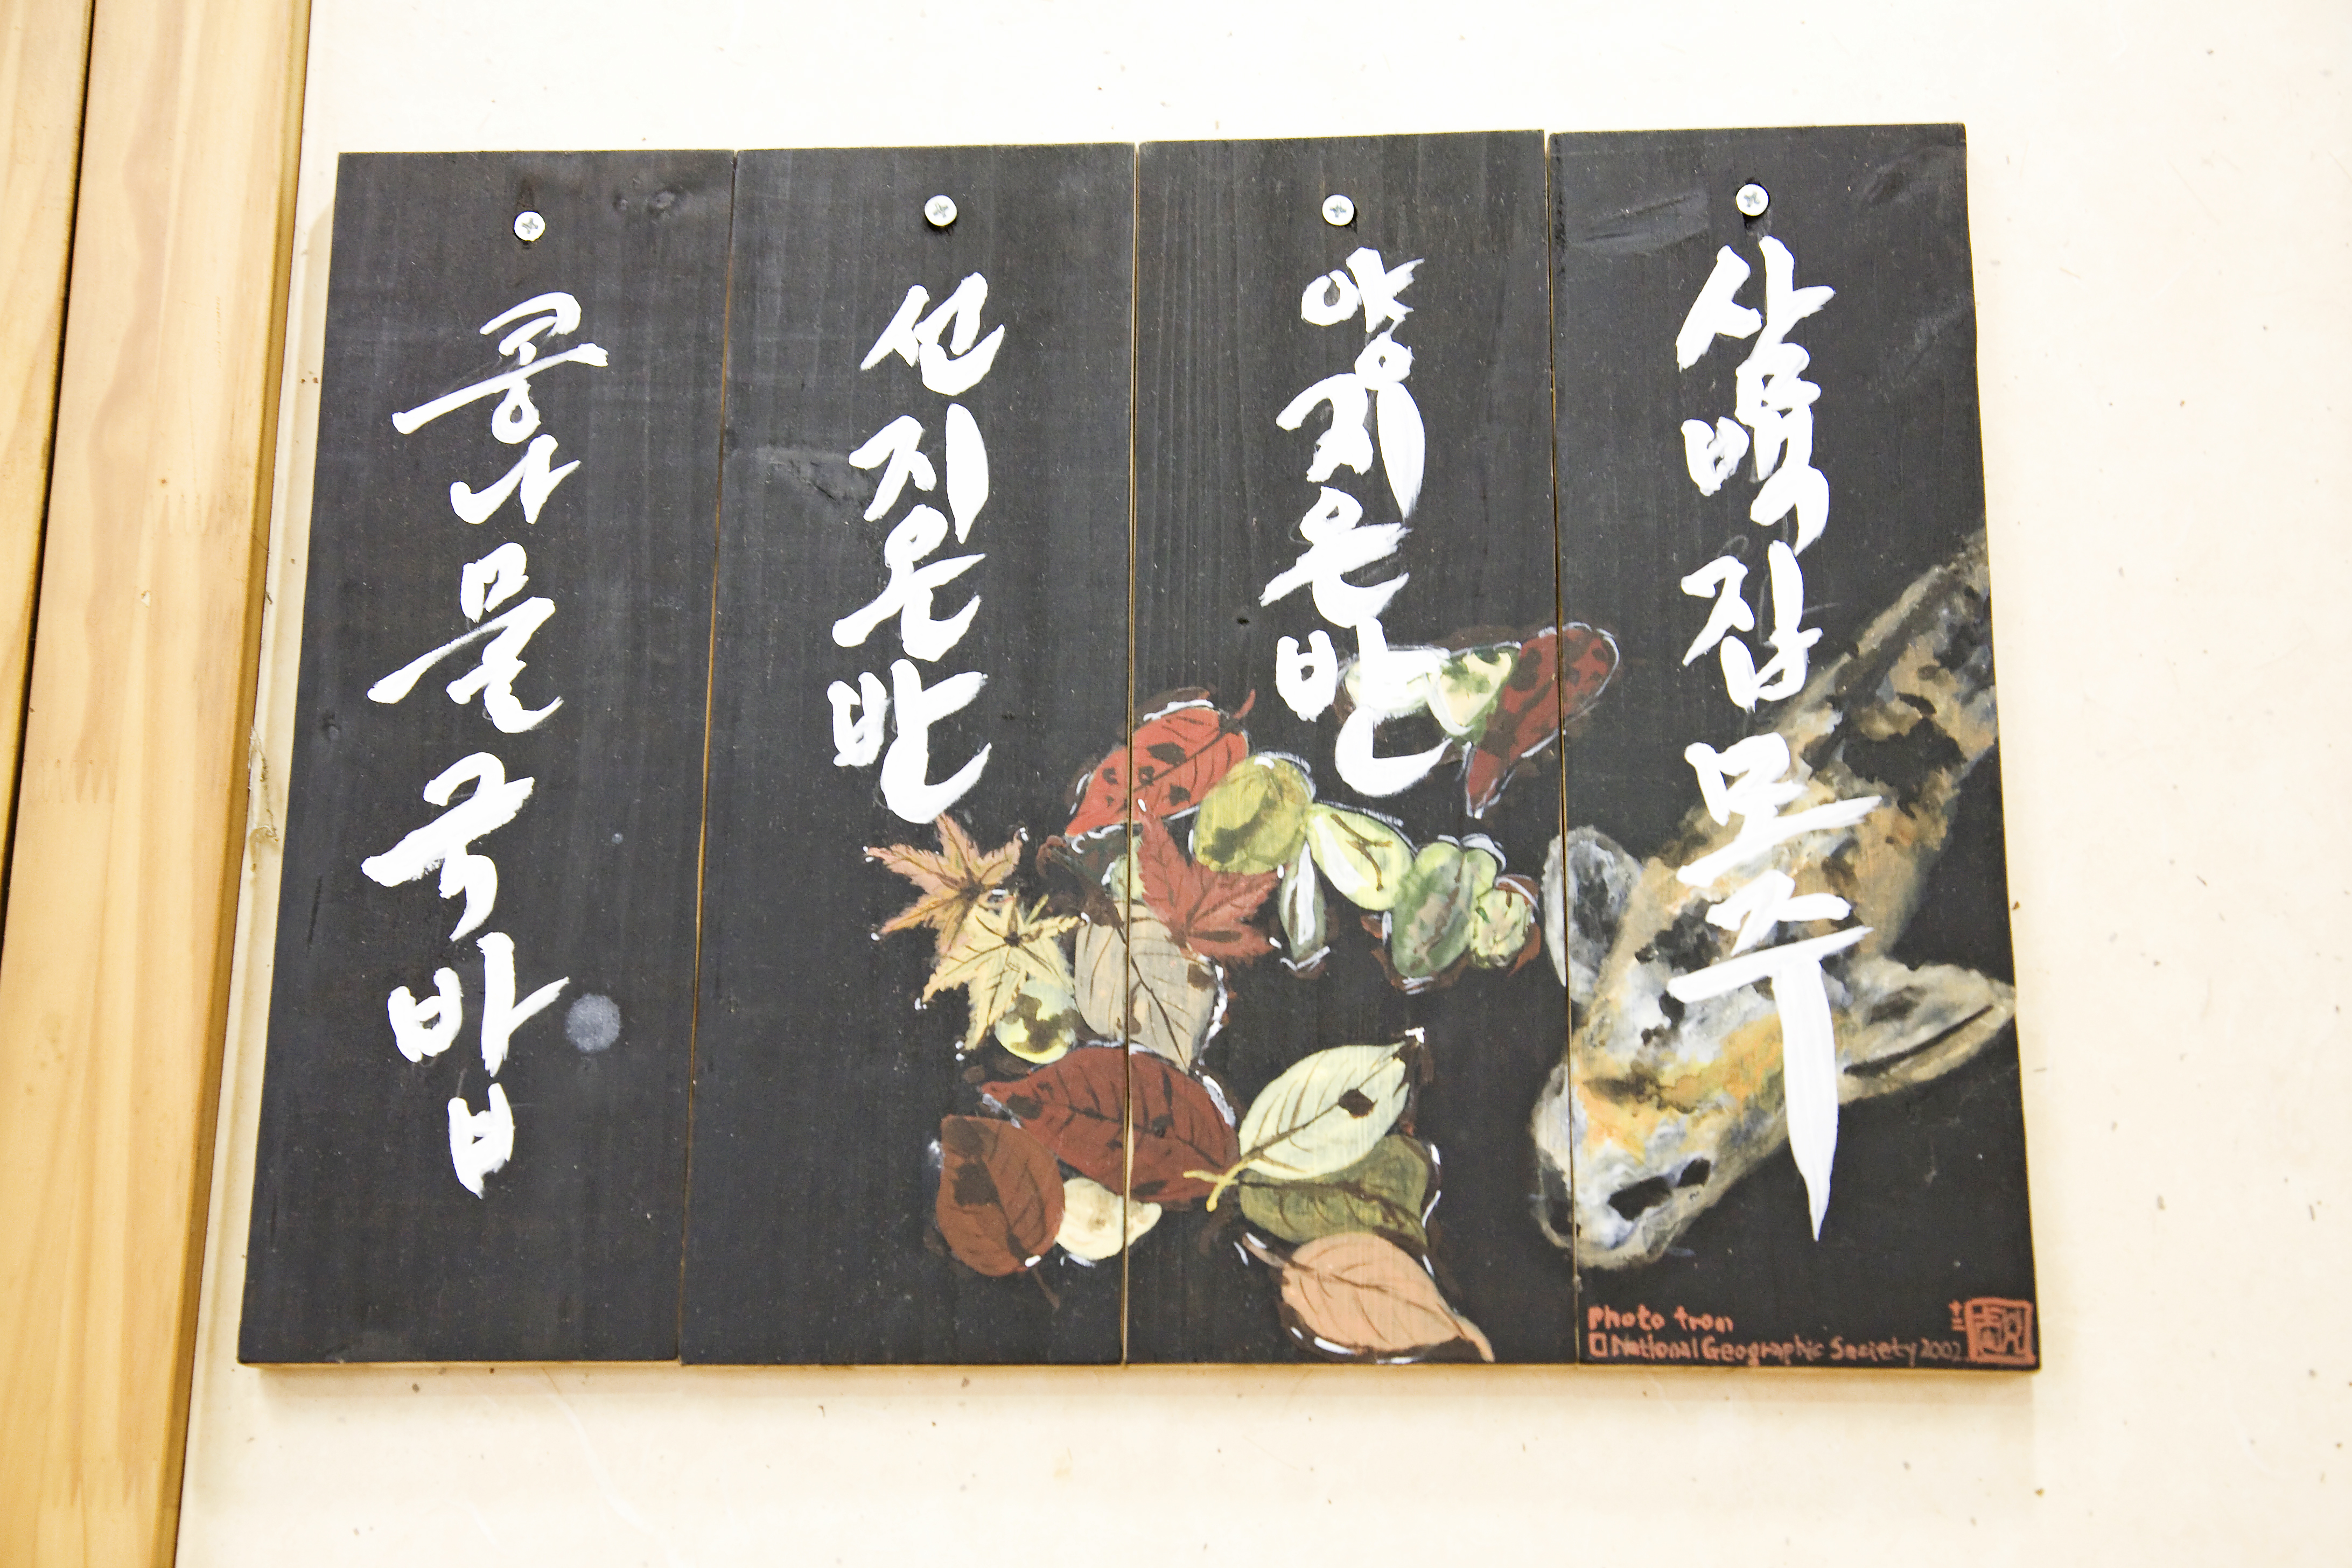 콩나물국밥
선지온반
양지온반
삼백집 모주
photo from
□National Geographic Society 2002